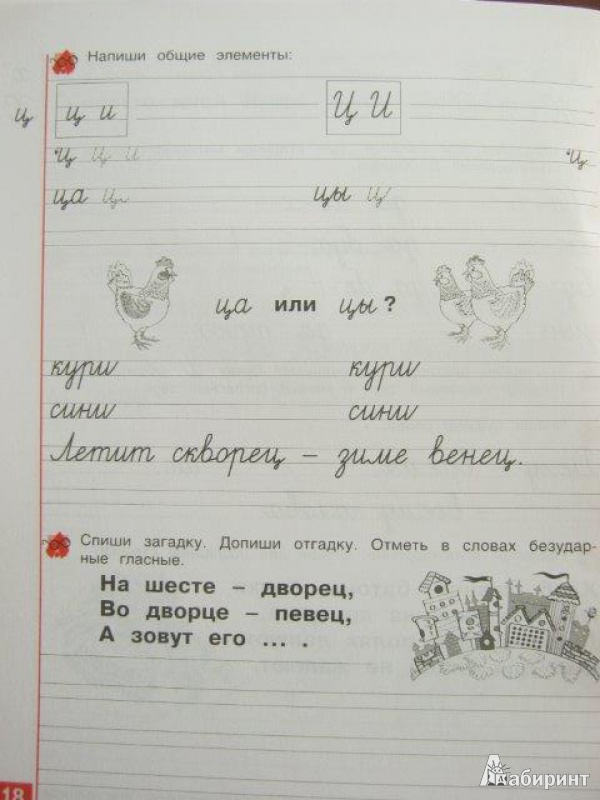 Напиши общие элементы:
ц ц и Ц И
ц ц и ц
ца ц цы ц
ца или цы ?
кури кури
сини сини
Летит скворец – зиме венец.
Спиши загадку. Допиши отгадку. Отметь в словах безудар-
ные гласные.
На шесте – дворец,
Во дворце – певец,
А зовут его ... .
18
Лабиринт